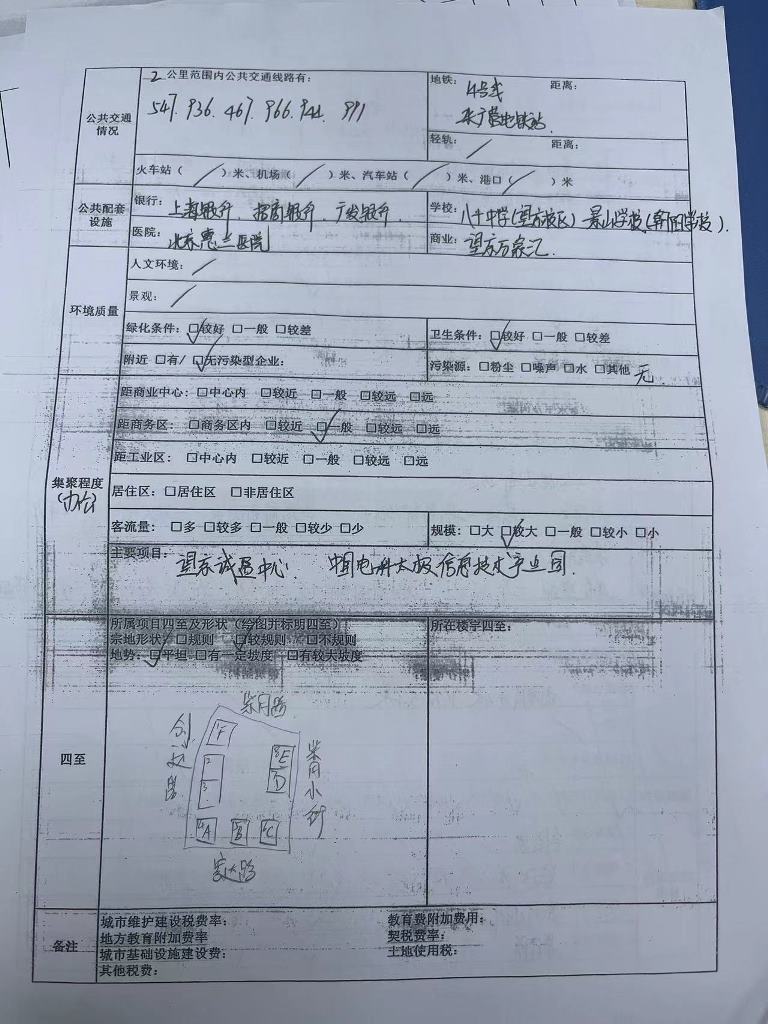 公共交通情况
2 公里范围内公共交通线路有:
547. 936. 467. 966. 944. 991
地铁: 4号线 距离:
来广营地铁站.
轻轨: / 距离:
火车站( / )米、机场( / )米、汽车站( / )米、港口( / )米
公共配套设施
银行: 上海银行. 招商银行. 广发银行.
学校: 八十中学(望京校区) 景山学校(朝阳学校).
医院: 北京惠兰医院
商业: 望京万象汇.
环境质量
人文环境: /
景观: /
绿化条件: ☑较好 □一般 □较差
卫生条件: ☑较好 □一般 □较差
附近 □有/ ☑无污染型企业:
污染源: □粉尘 □噪声 □水 □其他 无.
集聚程度
(办公)
距商业中心: □中心内 □较近 □一般 □较远 □远
距商务区: □商务区内 □较近 ☑一般 □较远 □远
距工业区: □中心内 □较近 □一般 □较远 □远
居住区: □居住区 □非居住区
客流量: □多 □较多 □一般 □较少 □少
规模: □大 ☑较大 □一般 □较小 □小
主要项目:
望京诚盈中心. 中国电科太极信息技术产业园.
四至
所属项目四至及形状(绘图并标明四至):
所在楼宇四至:
宗地形状: □规则 ☑较规则 □不规则
地势: ☑平坦 □有一定坡度 □有较大坡度
来广营
F
2
3
E
D
A
B
C
备注
城市维护建设税费率:
教育费附加费用:
地方教育附加费率
契税费率:
城市基础设施建设费:
土地使用税:
其他税费: